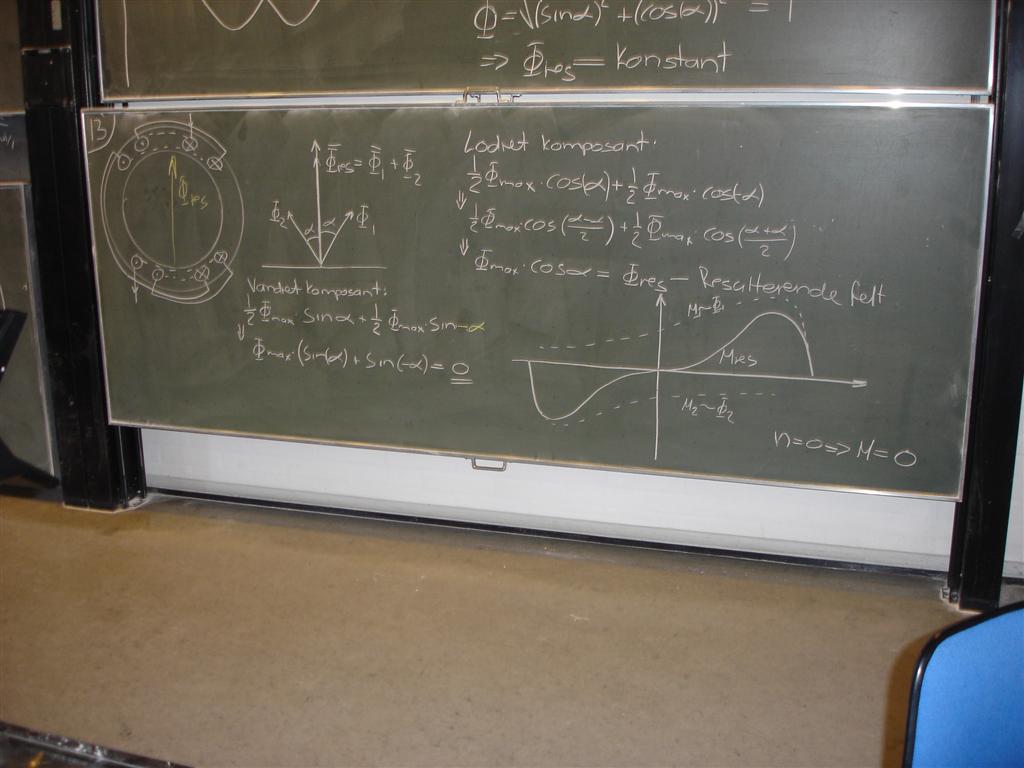 Φ = √(sinα)² + (cos(α))² = 1
=> Φres = Konstant
13
Φres
Φ̄res = Φ̄1 + Φ̄2
Φ̄2
Φ̄1
α α
Vandret komposant:
½ Φmax · sinα + ½ Φmax · sin-α
⇓ Φmax · (sin(α) + sin(-α) = 0
Lodret komposant:
½ Φmax · cos(α) + ½ Φmax · cos(-α)
⇓ ½ Φmax cos(α-α/2) + ½ Φmax · cos(α+α/2)
⇓ Φmax · cosα = Φres – Resulterende felt
M1~Φ1
Mres
M2~Φ2
n=0 => M=0